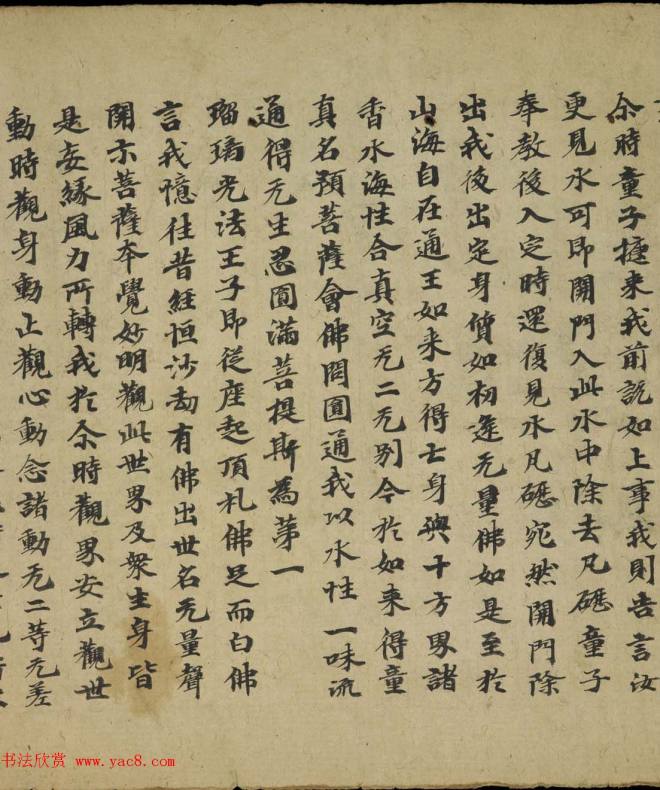 尒時童子捷来我前説如上事我則告言汝
更見水可即開門入此水中除去瓦礰童子
奉教後入定時還復見水瓦礰宛然開門除
出我後出定身質如初逢无量佛如是至於
山海自在通王如来方得亡身與十方界諸
香水海性合真空无二无别今於如来得童
真名預菩薩會佛問圓通我以水性一味流
通得无生忍圓滿菩提斯為第一
瑠璃光法王子即從座起頂礼佛足而白佛
言我憶往昔經恒沙劫有佛出世名无量聲
開示菩薩本覺妙明觀此世界及衆生身皆
是妄緣風力所轉我於尒時觀界安立觀世
動時觀身動止觀心動念諸動无二等无差
书法欣赏 www.yac8.com